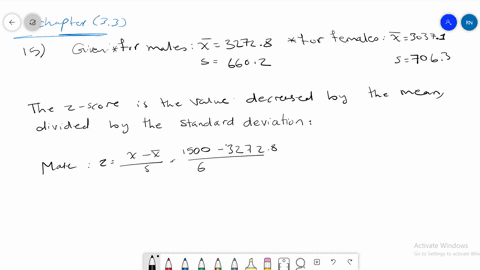 chapter (3.3)
15) Given * for males: x̄ = 3272.8 * for females: x̄ = 3037.1
s = 660.2 s = 706.3
The z-score is the value decreased by the mean,
divided by the standard deviation:
Male : z = x - x̄ / s = 1500 - 3272.8 / 6
Activate Windows
Go to Settings to activate Windows.
RN